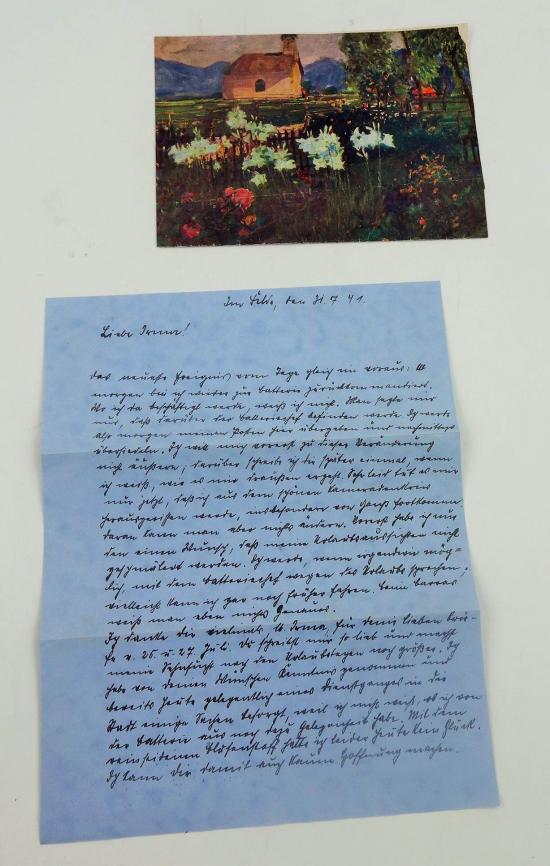 Im Felde, den 31.7.41.
Liebe Irma!
Das neueste Ereignis vom Tage gleich im voraus: Ab
morgen bin ich wieder zur Batterie zurückkommandiert.
Wo ich da beschäftigt werde, weiß ich nicht. Man sagte mir
nur, daß darüber der Batteriechef befinden werde. Ich werde
also morgen meinen Posten hier übergeben und nachmittags
übersiedeln. Ich will mich vorerst zu dieser Veränderung
nicht äußern; darüber schreibe ich dir später einmal, wenn
ich weiß, wie es mir draußen ergeht. Sehr leid tut es mir
nur jetzt, daß ich aus dem schönen Kameradenkreis
herausgerissen werde, insbesondere von fortkomme
daran kann man aber nichts ändern. Vorerst habe ich nur
den einen Wunsch, daß meine Urlaubsaussichten nicht
geschmälert werden. Ich werde, wenn irgendwie mög-
lich, mit dem Batteriechef wegen des Urlaubs sprechen;
vielleicht kann ich gar noch früher fahren. Beim Barras
weiß man eben nichts Genaues.
Ich danke dir vielmals, lb. Irma, für deine lieben Brie-
fe v. 26. u. 27. Juli. Du schreibst mir so lieb und machst
meine Sehnsucht nach den Urlaubstagen noch größer. Ich
habe von deinen Wünschen Kenntnis genommen und
bereits heute gelegentlich eines Dienstganges in die
Stadt einige Sachen besorgt, weil ich nicht weiß, ob ich von
der Batterie aus noch dazu Gelegenheit habe. Mit dem
reinseidenen Blusenstoff hatte ich leider heute kein Glück.
Ich kann dir damit auch kaum Hoffnung machen.